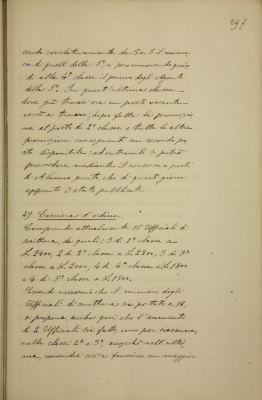 297
cendo correlativamente da 5 a 8 il nume-
ro di quelli della 5ª e promuovendo quin-
di alla 4ª classe il primo degli Agenti
della 5ª. In quest'ultima classe
dove già trovasi un posto vacante
verrà a trovarsi, dopo fatta la promozio-
ne al posto di 2ª classe e tutte le altre
promozioni conseguenti un secondo po-
sto disponibile ed entrambi si potrà
provvedere mediante il concorso a posti
di Alunno perito che di questi giorni
appunto è stato pubblicato.
4) Carriera d'ordine.
Comprende attualmente 15 Ufficiali di
scrittura, dei quali: 3 di 1ª classe a
L. 2400, 2 di 2ª classe a L. 2200, 3 di 3ª
classe a L. 2000, 4 di 4ª classe a L. 1800
e 4 di 5ª classe a L. 1500.
Essendo necessario che il numero degli
Ufficiali di scrittura sia portato a 18,
si propone, anche qui, che l'aumento
di 2 Ufficiali sia fatto, uno per ciascuna,
nelle classi 2ª e 3ª, anziché nell'ulti-
ma, venendo così a favorire un maggior